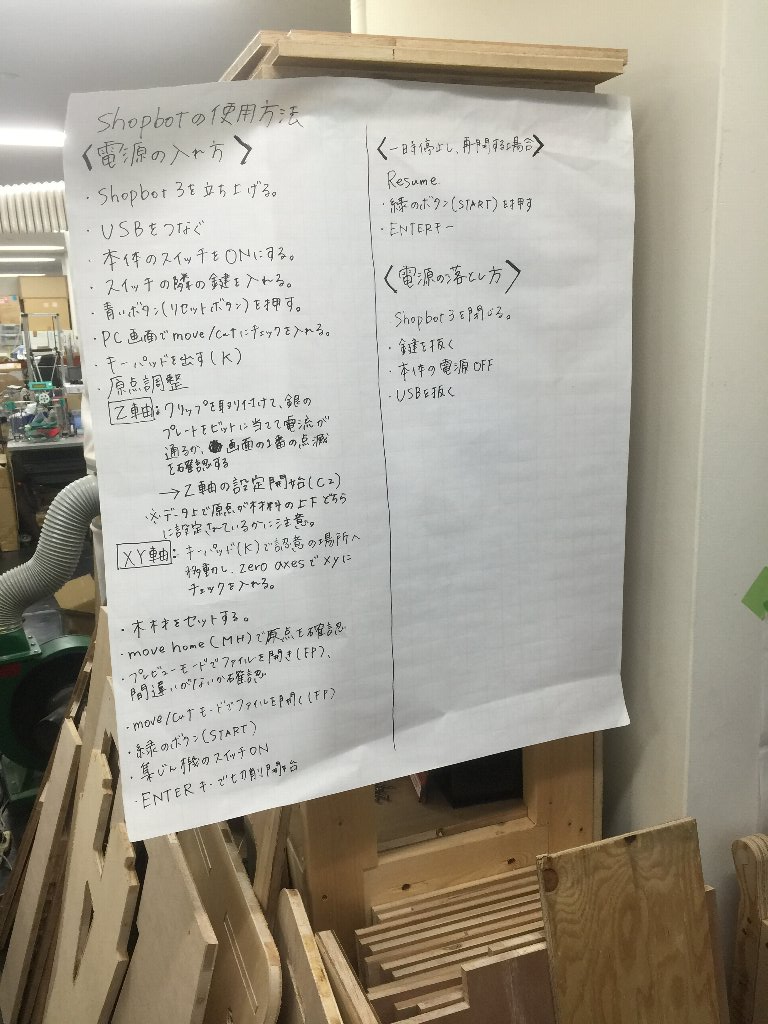 Shopbotの使用方法
〈電源の入れ方〉
・Shopbot3を立ち上げる。
・USBをつなぐ
・本体のスイッチをONにする。
・スイッチの隣の鍵を入れる。
・青いボタン(リセットボタン)を押す。
・PC画面でmove/cutにチェックを入れる。
・キーパッドを出す(K)
・原点調整
Z軸:クリップを取り付けて、銀の
プレートをビットに当てて電流が
通るか、画面の1番の点滅
を確認する
→Z軸の設定開始(C2)
※データ上で原点が木材料の上下どちら
に設定されているかに注意。
XY軸:キーパッド(K)で認意の場所へ
移動し、zero axesでxyに
チェックを入れる。
・木材をセットする。
・move home(MH)で原点を確認
・プレビューモードでファイルを開き(FP)、
間違いがないか確認
・move/cutモードでファイルを開く(FP)
・緑のボタン(START)
・集じん機のスイッチON
・ENTERキーで切削開始
〈一時停止し、再開する場合〉
Resume
・緑のボタン(START)を押す
・ENTERキー
〈電源の落とし方〉
Shopbot3を閉じる。
・鍵を抜く
・本体の電源OFF
・USBを抜く